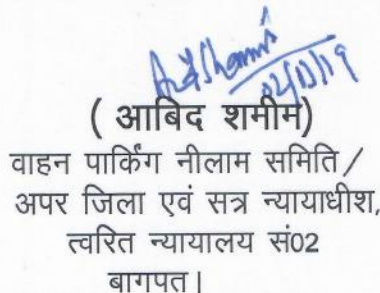 02/11/19
( आबिद शमीम)
वाहन पार्किंग नीलाम समिति /
अपर जिला एवं सत्र न्यायाधीश,
त्वरित न्यायालय सं02
बागपत।